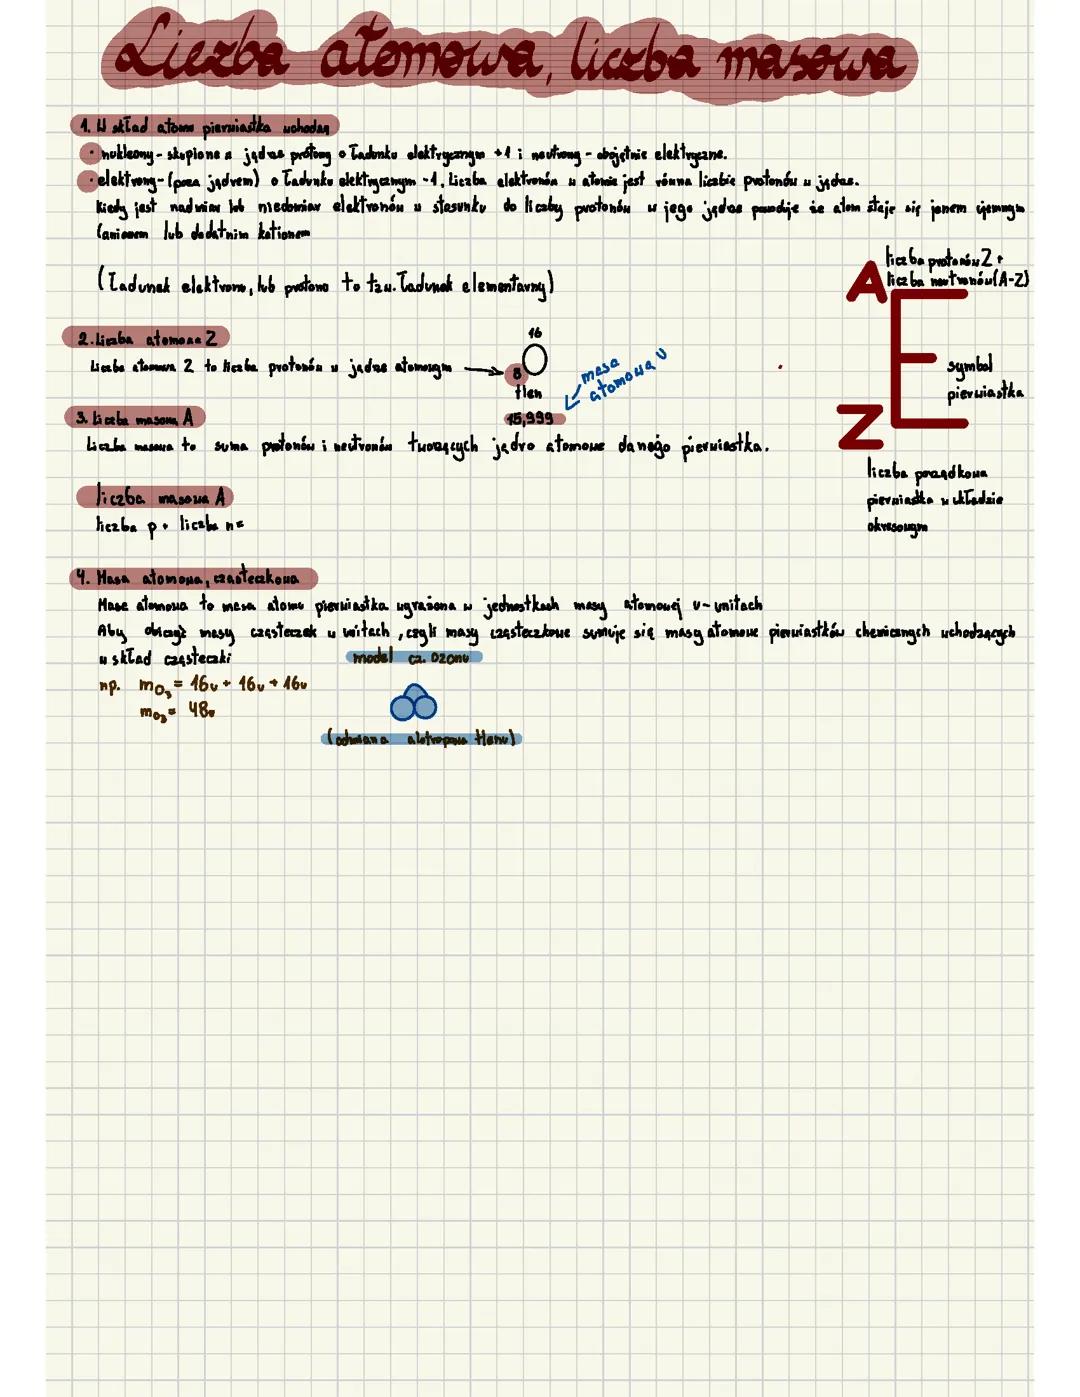 Liczba atomowa, liczba masowa
1. W skład atomu pierwiastka wchodzą
• nukleony - skupione w jądrze protony o ładunku elektrycznym +1 i neutrony - obojętnie elektryczne.
• elektrony - (poza jądrem) o ładunku elektrycznym -1. Liczba elektronów w atomie jest równa liczbie protonów w jądrze.
Kiedy jest nadmiar lub niedomiar elektronów w stosunku do liczby protonów w jego jądrze powoduje że atom staje się jonem ujemnym
(anionem lub dodatnim kationem
(Ładunek elektronu, lub protonu to tzw. ładunek elementarny)
A liczba protonów Z +
liczba neutronów (A-Z)
E
symbol
pierwiastka
Z
liczba porządkowa
pierwiastka w układzie
okresowym
2. Liczba atomowa Z
Liczba atomowa Z to liczba protonów w jądrze atomowym
16
8 O
tlen
15,999
masa
atomowa u
3. Liczba masowa A
Liczba masowa to suma protonów i neutronów tworzących jądro atomowe danego pierwiastka.
liczba masowa A
liczba p + liczba n =
4. Masa atomowa, cząsteczkowa
Masa atomowa to masa atomu pierwiastka wyrażona w jednostkach masy atomowej u - unitach
Aby obliczyć masy cząsteczek w unitach, czyli masy cząsteczkowe sumuje się masy atomowe pierwiastków chemicznych wchodzących
w skład cząsteczki
model cz. ozonu
np. mO₃ = 16u + 16u + 16u
mO₃ = 48u
(odmiana alotropowa tlenu)